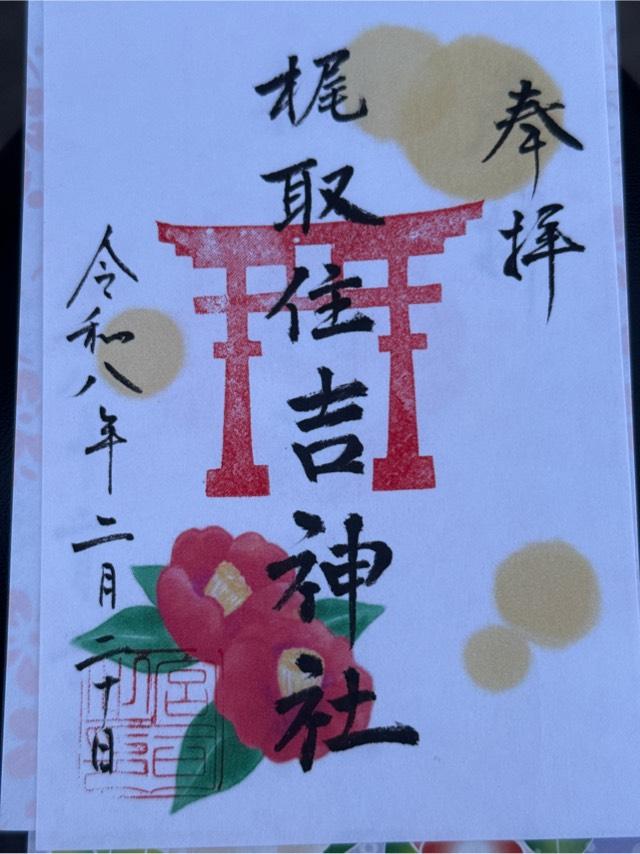 奉拝
梶取住吉神社
令和八年二月二十日